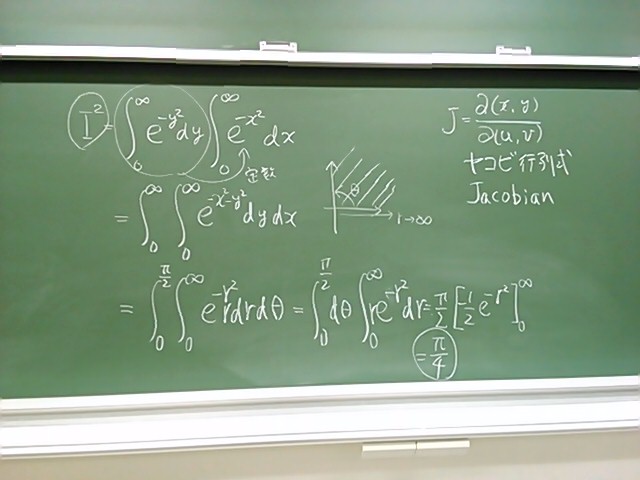 I² = ∫₀^∞ e^{-y²}dy ∫₀^∞ e^{-x²} dx
定数
= ∫₀^∞ ∫₀^∞ e^{-x²-y²} dy dx
θ
r→∞
= ∫₀^{π/2} ∫₀^∞ e^{-r²} r dr dθ = ∫₀^{π/2} dθ ∫₀^∞ r e^{-r²} dr = π/2 [-1/2 e^{-r²}]₀^∞
= π/4
J = ∂(x, y)/∂(u, v)
ヤコビ行列式
Jacobian